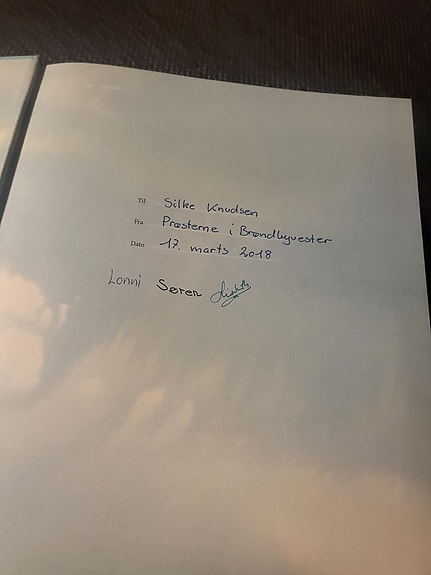 Til Silke Knudsen
Fra Præsterne i Brøndbyvester
Dato 17. marts 2018
Lonni Søren